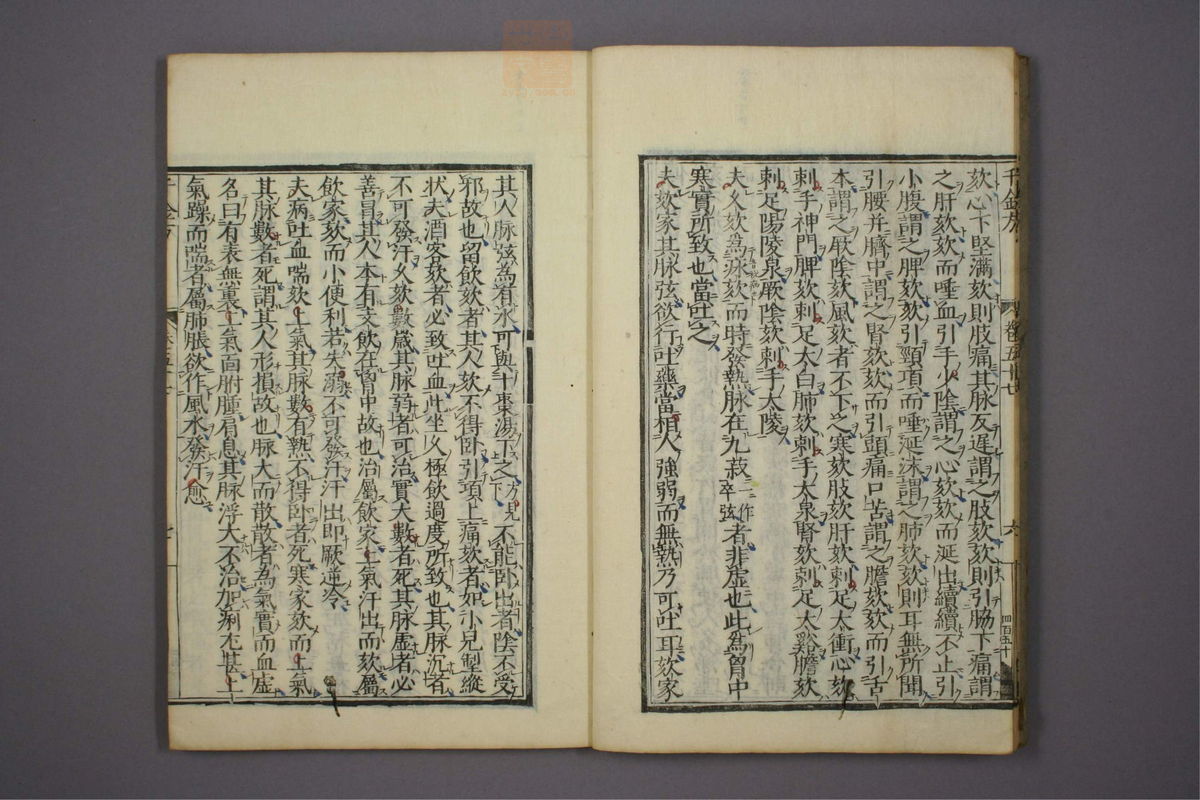 千金方 卷五十七 六 四百五十
欬心下堅滿欬則肢痛其脉反遲謂之肢欬欬則引脇下痛謂
之肝欬欬而唾血引手少陰謂之心欬欬而涎出續續不止引
小腹謂之脾欬欬引頸項而唾涎沫謂之肺欬欬則耳無所聞
引腰并臍中謂之腎欬欬而引頭痛口苦謂之膽欬欬而引舌
本謂之厥陰欬風欬者不下之寒欬肢欬肝欬刺足太衝心欬
刺手神門脾欬刺足太白肺欬刺手太泉腎欬刺足太谿膽欬
刺足陽陵泉厥陰欬刺手太陵
夫久欬為㾬欬而時發熱脉在九菽一作卒弦者非虛也此為胷中
寒實所致也當吐之
夫欬家其脉弦欲行吐藥當相人強弱而無熱乃可吐耳欬家
其人脉弦為有水可與十棗湯下之方見下不能卧出者陰不受
邪故也留飲欬者其人欬不得卧引項上痛欬者如小兒掣縱
狀夫酒客欬者必致吐血此坐久極飲過度所致也其脉沉者
不可發汗久欬數歲其脉弱者可治實大數者死其脉虛者必
善冒其人本有支飲在胷中故也治屬飲家上氣汗出而欬屬
飲家欬而小便利若失溺不可發汗汗出即厥逆冷
夫病吐血喘欬上氣其脉數有熱不得卧者死寒家欬而上氣
其脉數者死謂其人形損故也脉大而散散者為氣實而血虛
名曰有表無裏上氣面胕腫肩息其脉浮大不治加痢尤甚上
氣躁而喘者屬肺脹欲作風水發汗愈